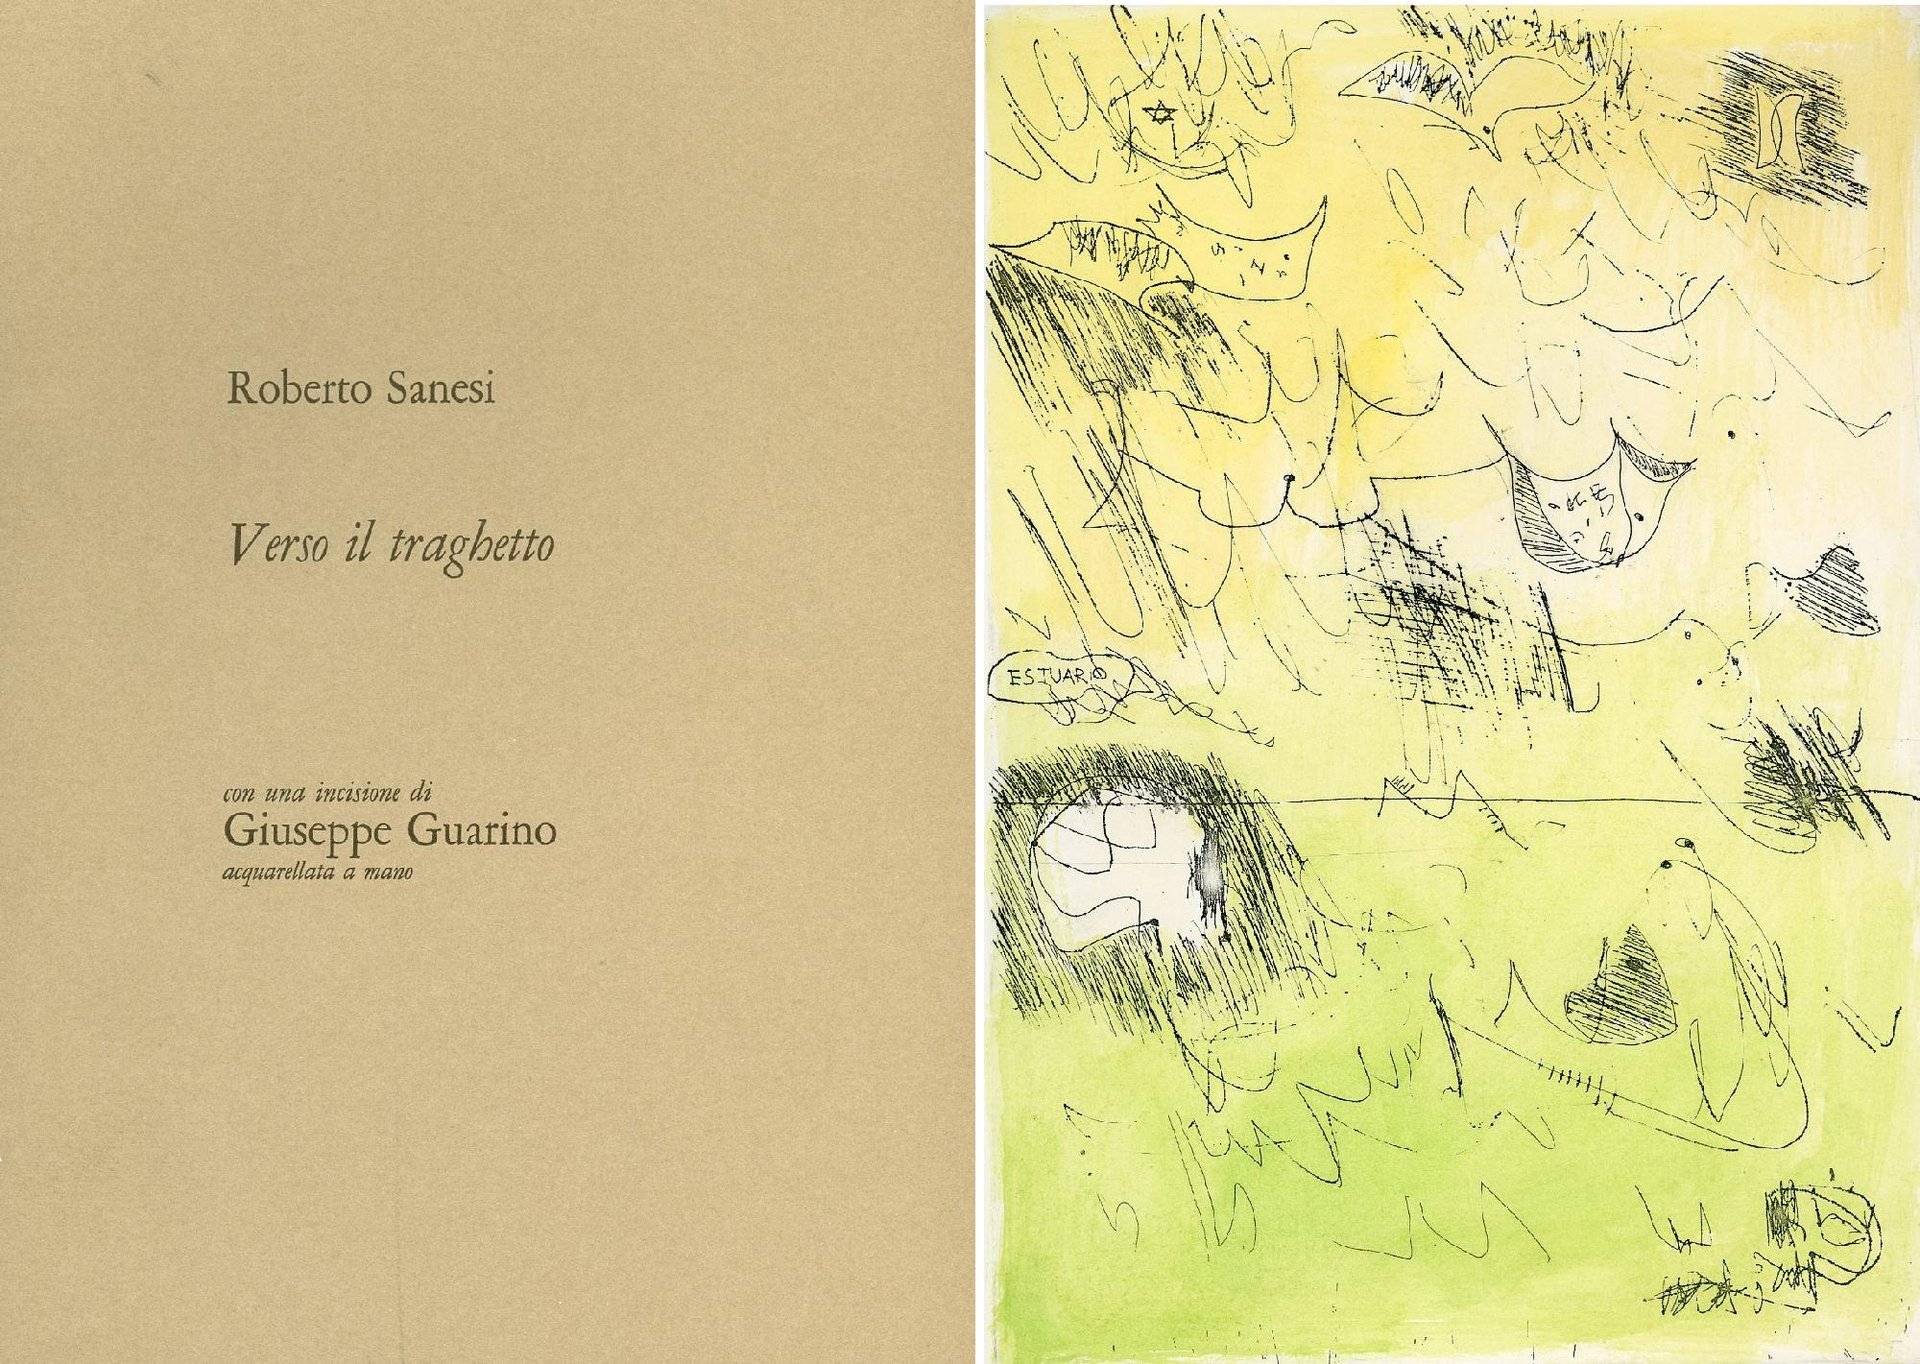 Roberto Sanesi
Verso il traghetto
con una incisione di
Giuseppe Guarino
acquarellata a mano
ESTUARIO